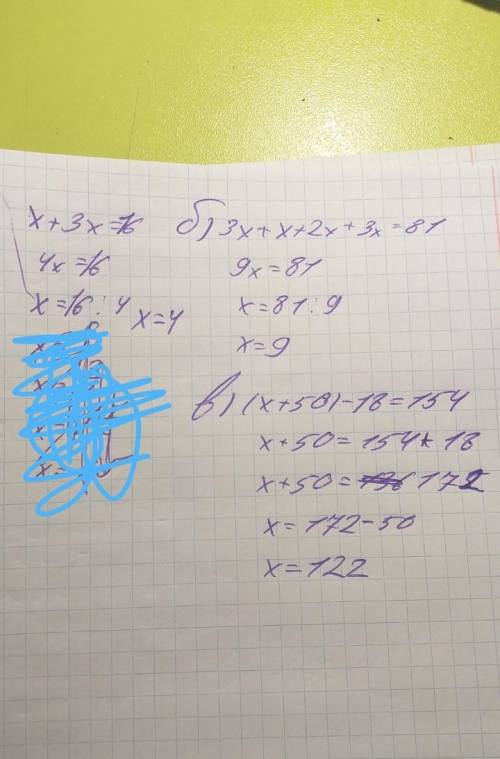 x+3x=16
4x=16
x=16:4
x=4
б) 3x+x+2x+3x=81
9x=81
x=81:9
x=9
в) (x+50)-18=154
x+50=154+18
x+50=172
x=172-50
x=122